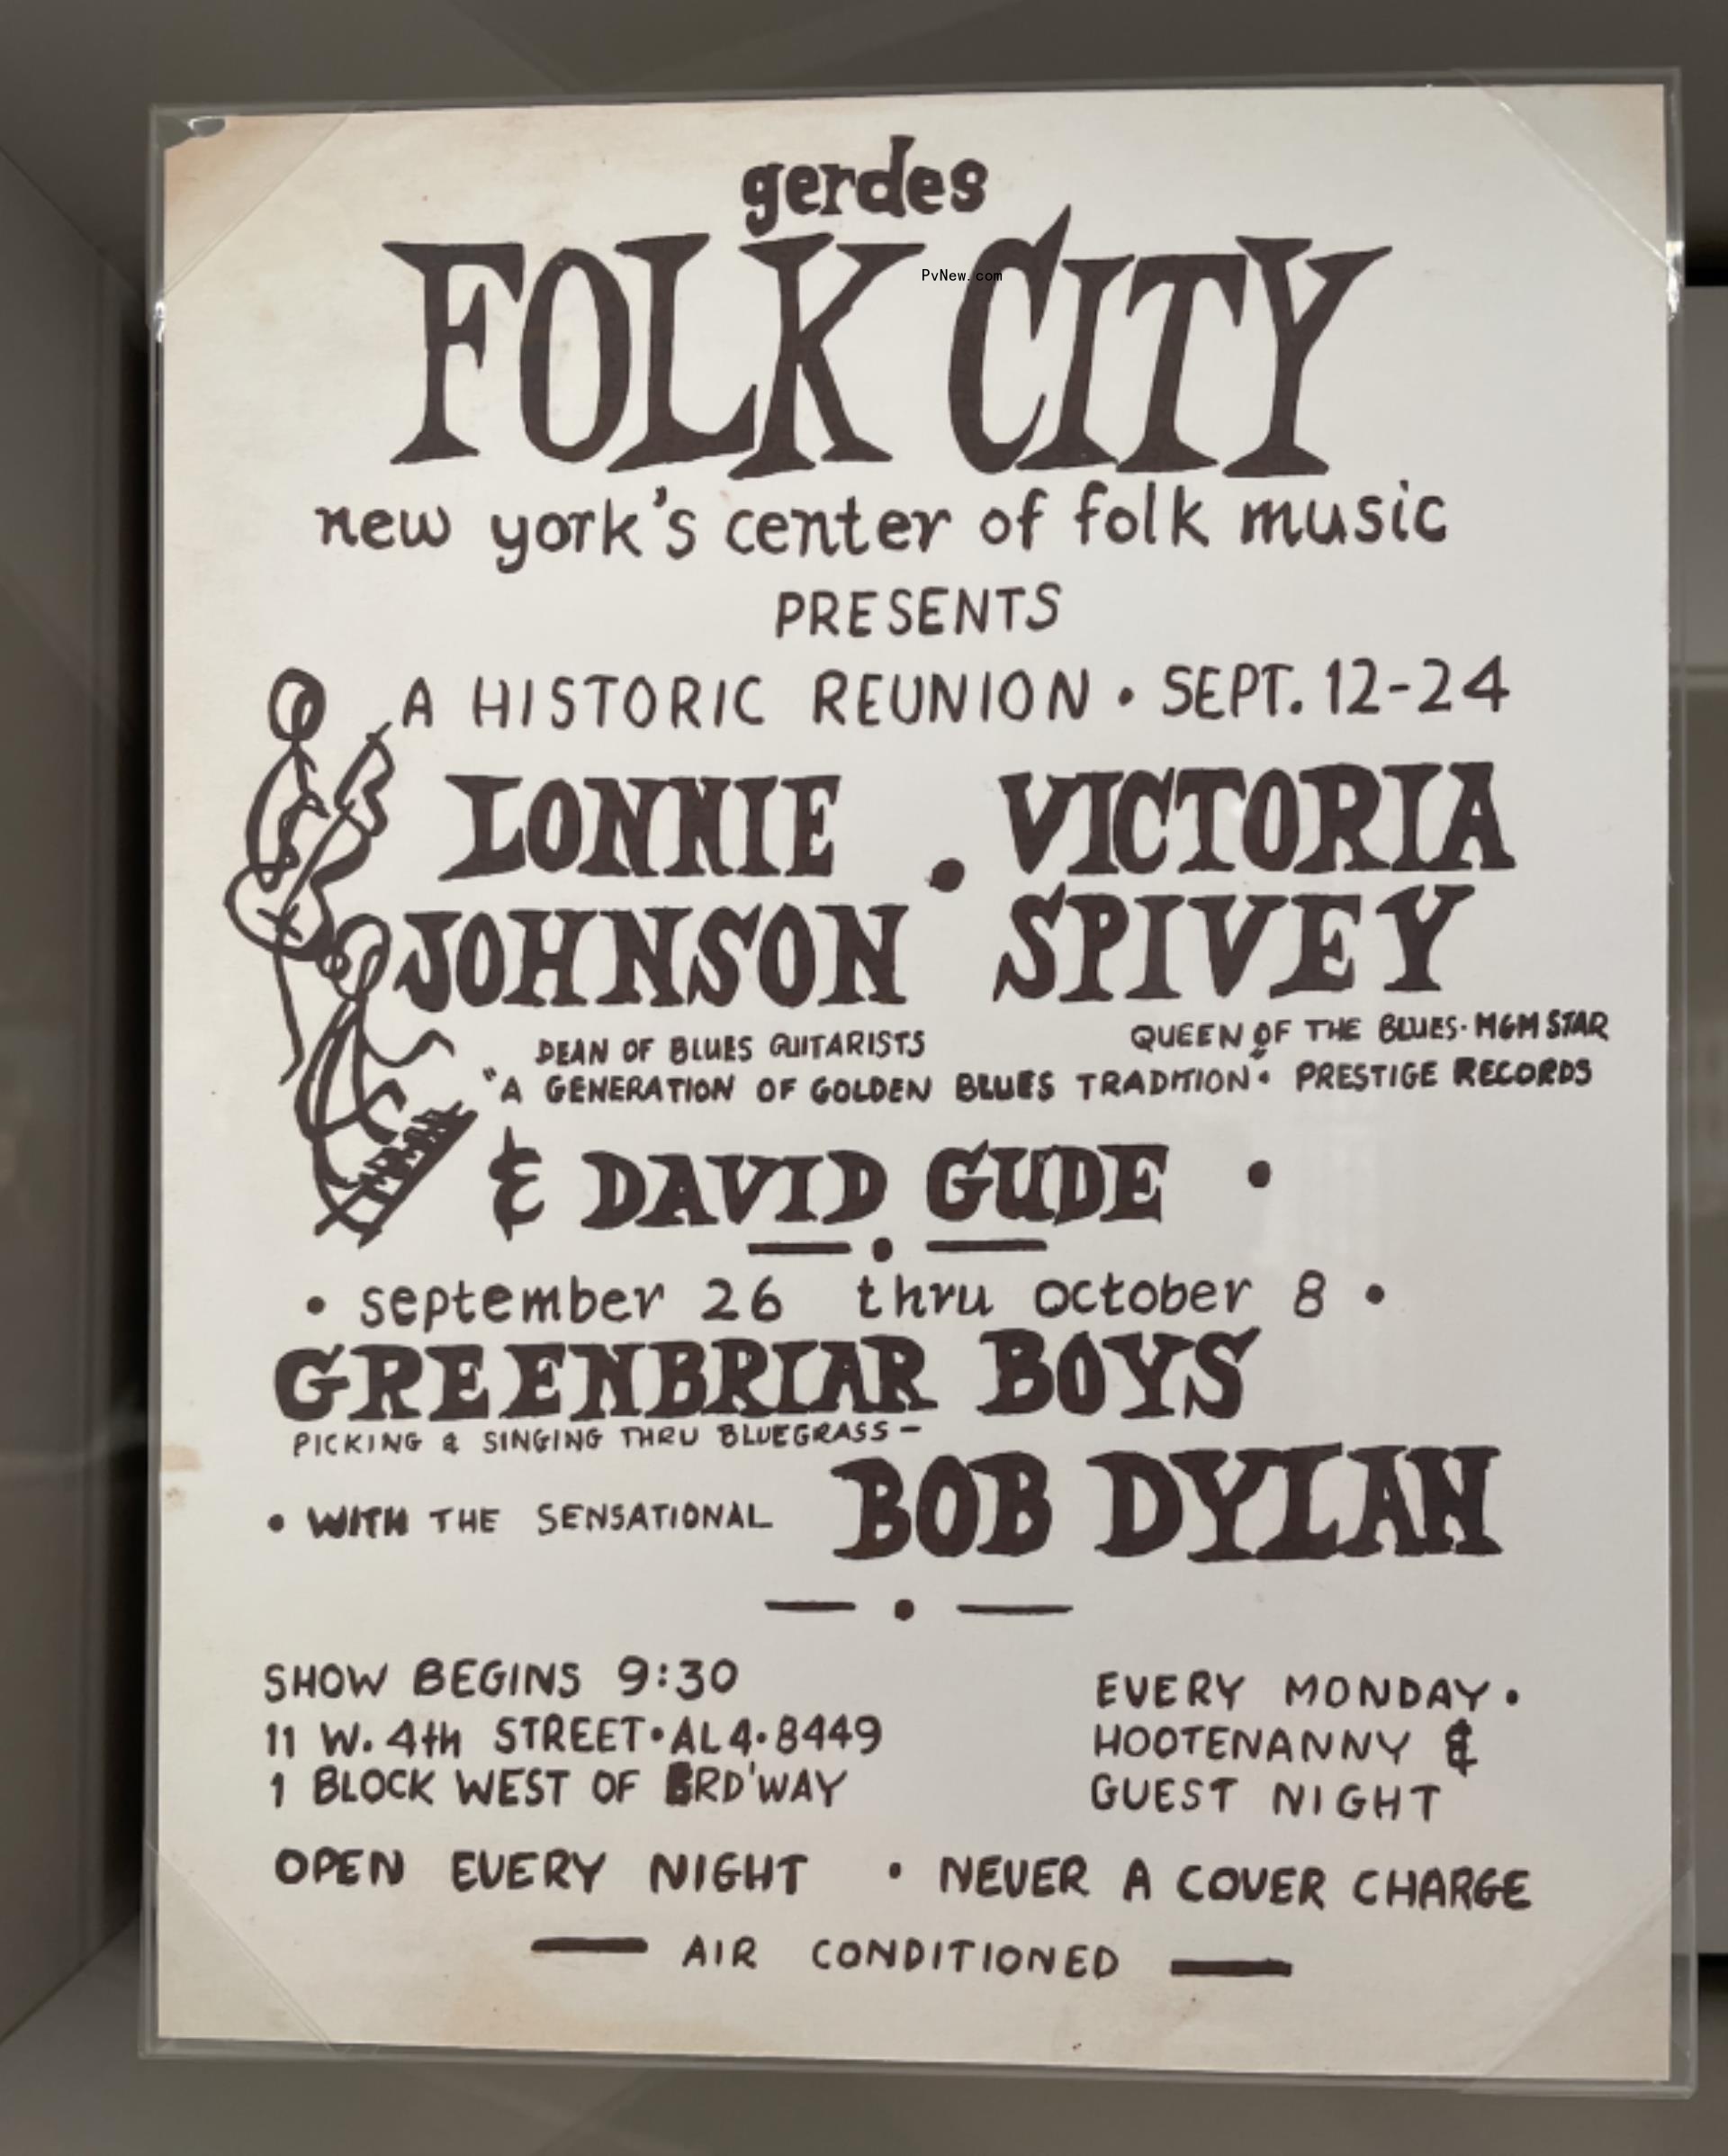 gerdes
FOLK CITY
PvNew.com
new york's center of folk music
PRESENTS
A HISTORIC REUNION • SEPT. 12-24
LONNIE • VICTORIA
JOHNSON SPIVEY
DEAN OF BLUES GUITARISTS QUEEN OF THE BLUES • MGM STAR
"A GENERATION OF GOLDEN BLUES TRADITION" • PRESTIGE RECORDS
& DAVID GUDE •
— • —
• september 26 thru october 8 •
GREENBRIAR BOYS
PICKING & SINGING THRU BLUEGRASS —
• WITH THE SENSATIONAL BOB DYLAN
— • —
SHOW BEGINS 9:30
11 W. 4th STREET • AL4 • 8449
1 BLOCK WEST OF BRD'WAY
EVERY MONDAY •
HOOTENANNY &
GUEST NIGHT
OPEN EVERY NIGHT • NEVER A COVER CHARGE
— AIR CONDITIONED —